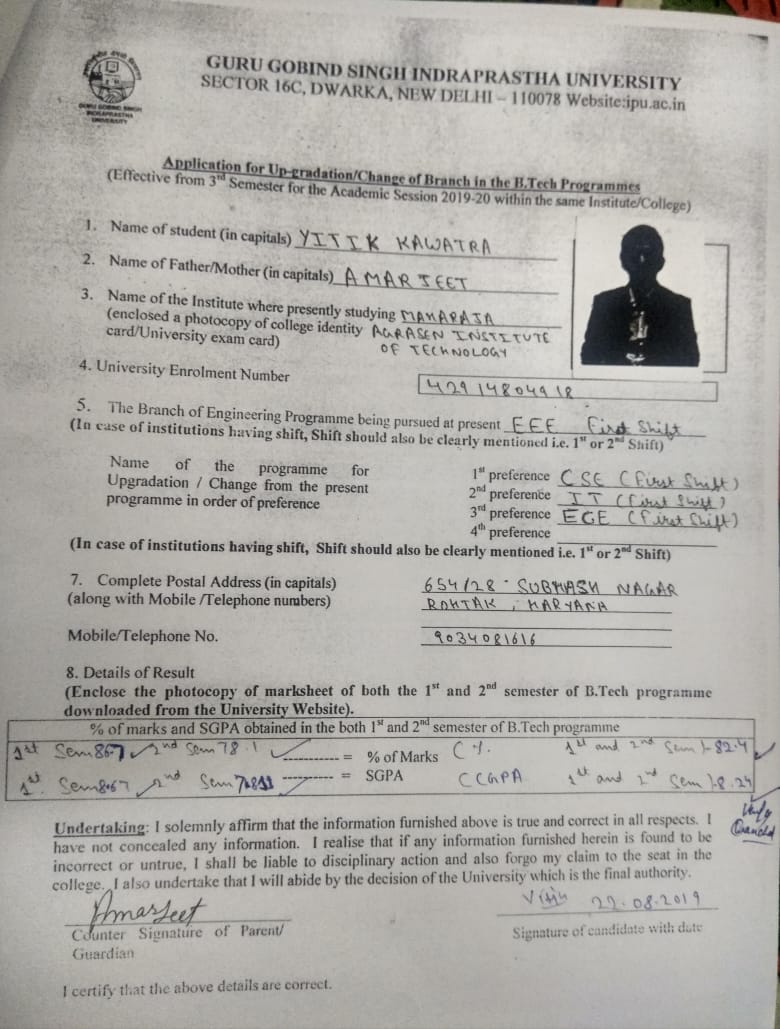 GURU GOBIND SINGH INDRAPRASTHA UNIVERSITY
SECTOR 16C, DWARKA, NEW DELHI – 110078 Website:ipu.ac.in
GURU GOBIND SINGH
INDRAPRASTHA
UNIVERSITY
Application for Up-gradation/Change of Branch in the B.Tech Programmes
(Effective from 3rd Semester for the Academic Session 2019-20 within the same Institute/College)
1. Name of student (in capitals) YITIK KAWATRA
2. Name of Father/Mother (in capitals) AMARJEET
3. Name of the Institute where presently studying MAHARAJA
(enclosed a photocopy of college identity AGRASEN INSTITUTE
card/University exam card) OF TECHNOLOGY
4. University Enrolment Number 42914804918
5. The Branch of Engineering Programme being pursued at present EEE First Shift
(In case of institutions having shift, Shift should also be clearly mentioned i.e. 1st or 2nd Shift)
Name of the programme for 1st preference CSE (First Shift)
Upgradation / Change from the present 2nd preference IT (First Shift)
programme in order of preference 3rd preference ECE (First Shift)
4th preference
(In case of institutions having shift, Shift should also be clearly mentioned i.e. 1st or 2nd Shift)
7. Complete Postal Address (in capitals) 654/28 - SUBHASH NAGAR
(along with Mobile /Telephone numbers) ROHTAK, HARYANA
Mobile/Telephone No. 9034081616
8. Details of Result
(Enclose the photocopy of marksheet of both the 1st and 2nd semester of B.Tech programme
downloaded from the University Website).
% of marks and SGPA obtained in the both 1st and 2nd semester of B.Tech programme
1st Sem 86.7 2nd Sem 78.1 ----------- = % of Marks C % 1st and 2nd Sem :- 82.4
1st Sem 8.67 2nd Sem ---------- = SGPA CCGPA 1st and 2nd Sem :- 8.24
Undertaking: I solemnly affirm that the information furnished above is true and correct in all respects. I
have not concealed any information. I realise that if any information furnished herein is found to be
incorrect or untrue, I shall be liable to disciplinary action and also forgo my claim to the seat in the
college. I also undertake that I will abide by the decision of the University which is the final authority.
Amarjeet
22.08.2019
Counter Signature of Parent/ Signature of candidate with date
Guardian
I certify that the above details are correct.